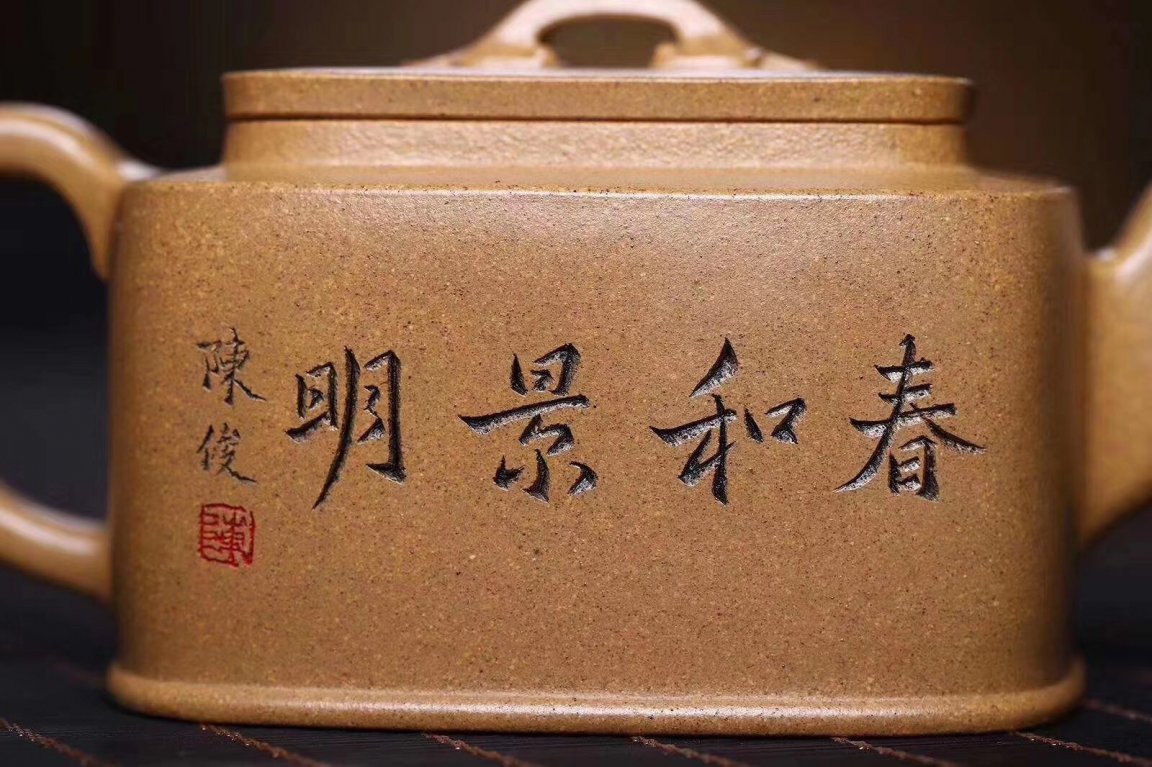 春和景明
陳俊
陳